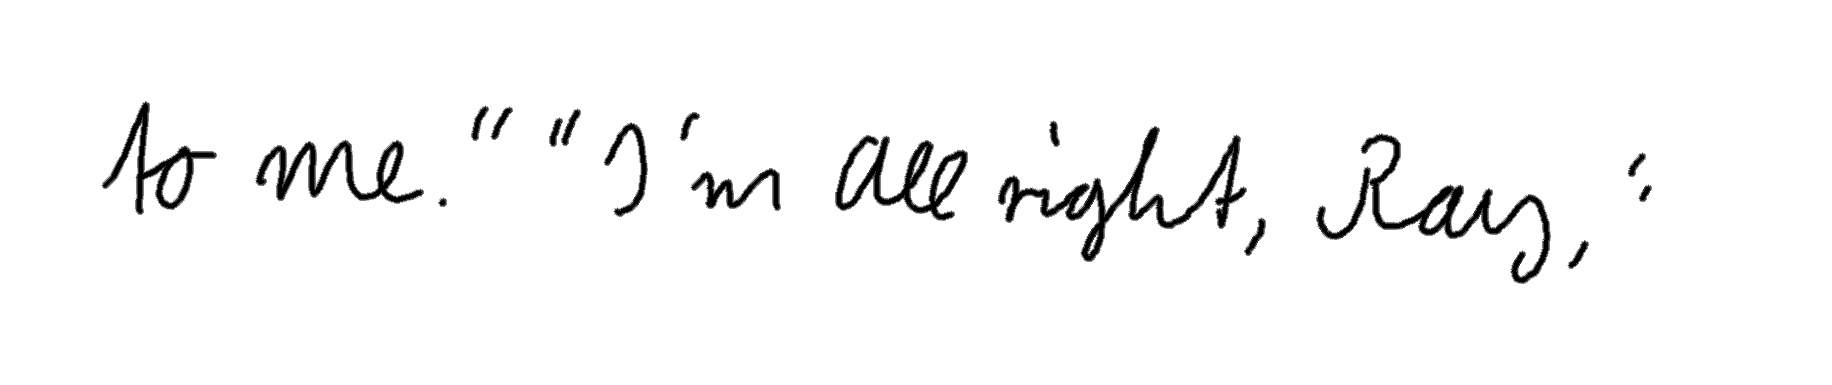 to me." "I'm all right, Ray,"